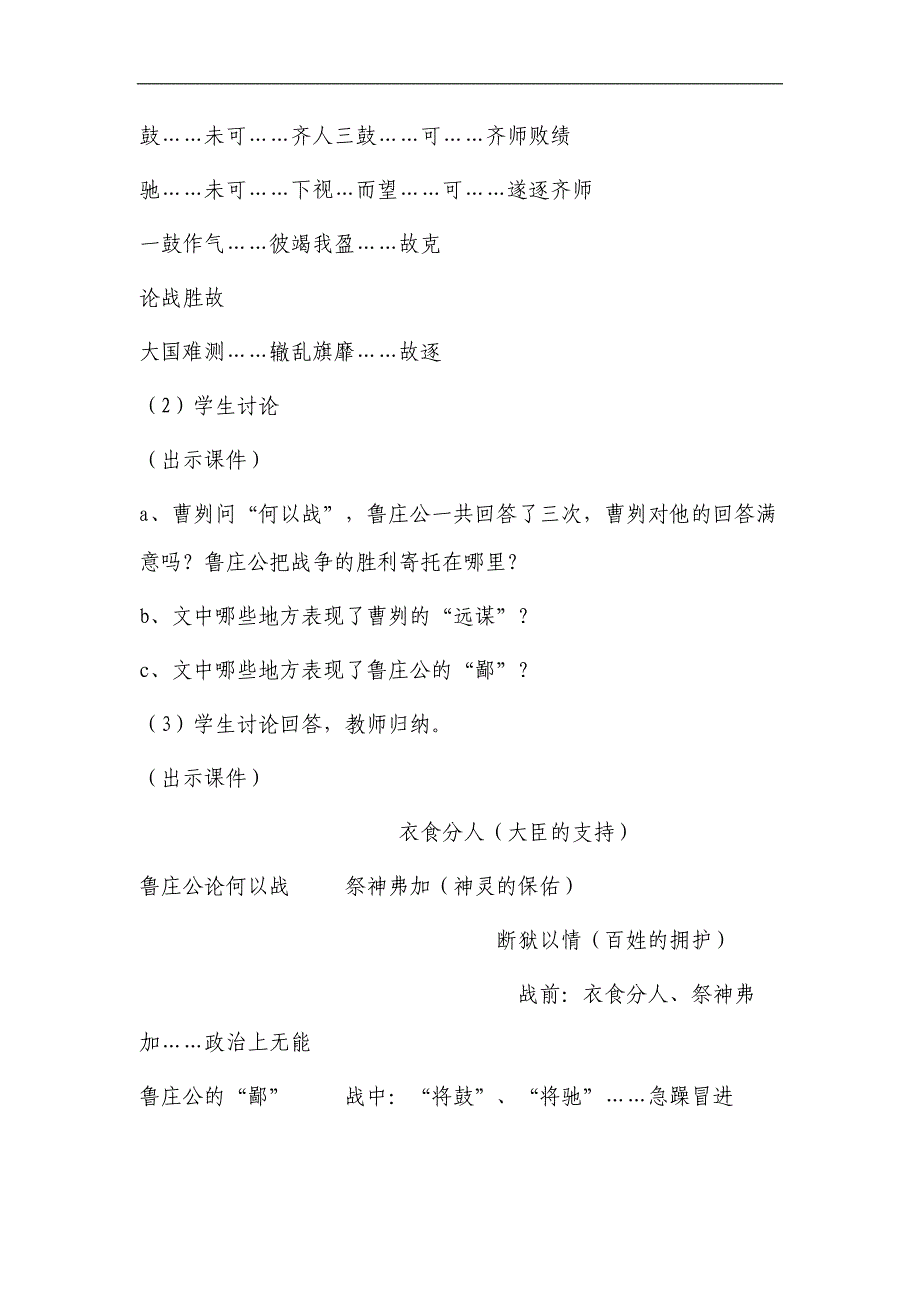 鼓……未可……齐人三鼓……可……齐师败绩
驰……未可……下视…而望……可……遂逐齐师
一鼓作气……彼竭我盈……故克
论战胜故
大国难测……辙乱旗靡……故逐
（2）学生讨论
（出示课件）
a、曹刿问“何以战”，鲁庄公一共回答了三次，曹刿对他的回答满
意吗？鲁庄公把战争的胜利寄托在哪里？
b、文中哪些地方表现了曹刿的“远谋”？
c、文中哪些地方表现了鲁庄公的“鄙”？
（3）学生讨论回答，教师归纳。
（出示课件）
衣食分人（大臣的支持）
鲁庄公论何以战 祭神弗加（神灵的保佑）
断狱以情（百姓的拥护）
战前：衣食分人、祭神弗
加……政治上无能
鲁庄公的“鄙” 战中：“将鼓”、“将驰”……急躁冒进